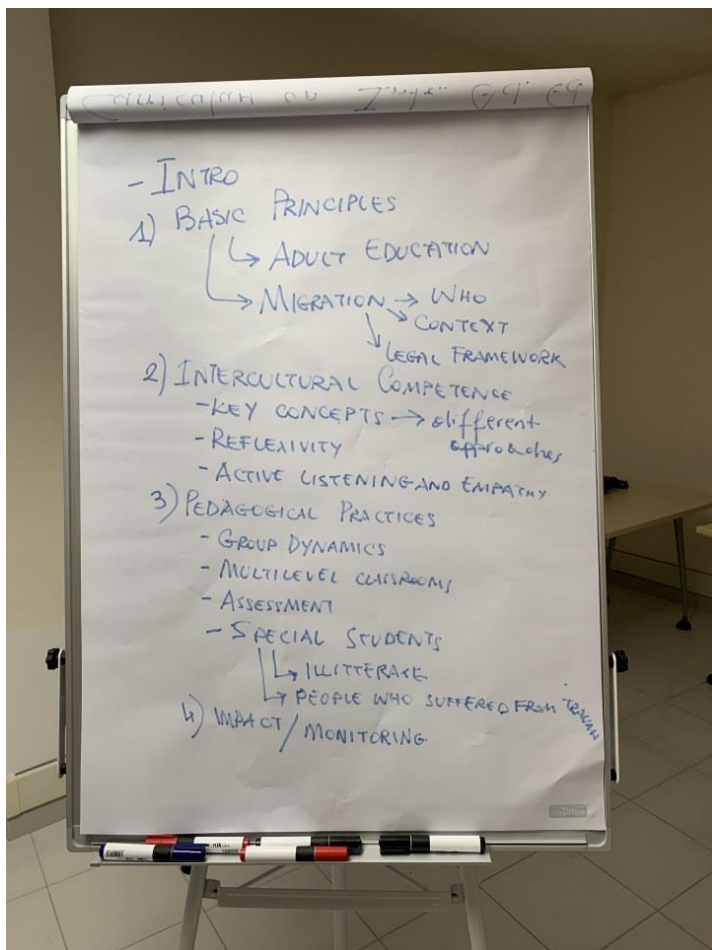 - INTRO
1) BASIC PRINCIPLES
↳ ADULT EDUCATION
→ MIGRATION → WHO
→ CONTEXT
→ LEGAL FRAMEWORK
2) INTERCULTURAL COMPETENCE
- KEY CONCEPTS → different
approaches
- REFLEXIVITY
- ACTIVE LISTENING AND EMPATHY
3) PEDAGOGICAL PRACTICES
- GROUP DYNAMICS
- MULTILEVEL CLASSROOMS
- ASSESSMENT
- SPECIAL STUDENTS
↳ ILLITTERATE
→ PEOPLE WHO SUFFERED FROM
4) IMPACT / MONITORING